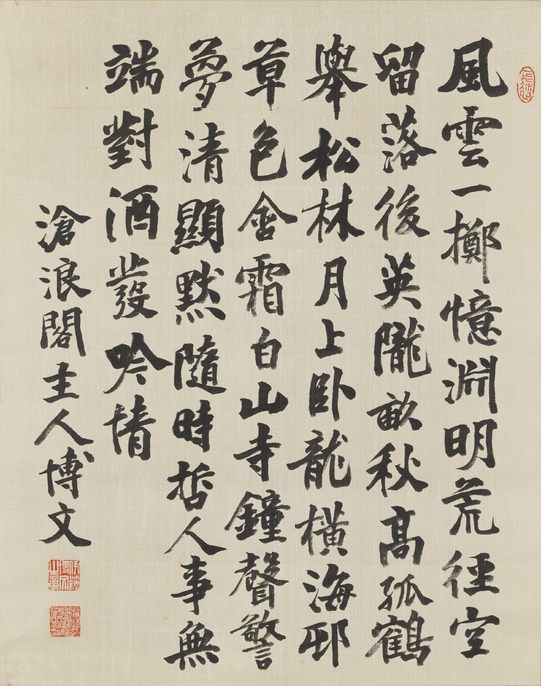 風雲一擲憶淵明荒徑空
留落後英隴畝秋高孤鶴
舉松林月上卧龍橫海邨
草色含霜白山寺鐘聲警
夢清顯默隨時哲人事無
端對酒發吟情
滄浪閣主人博文